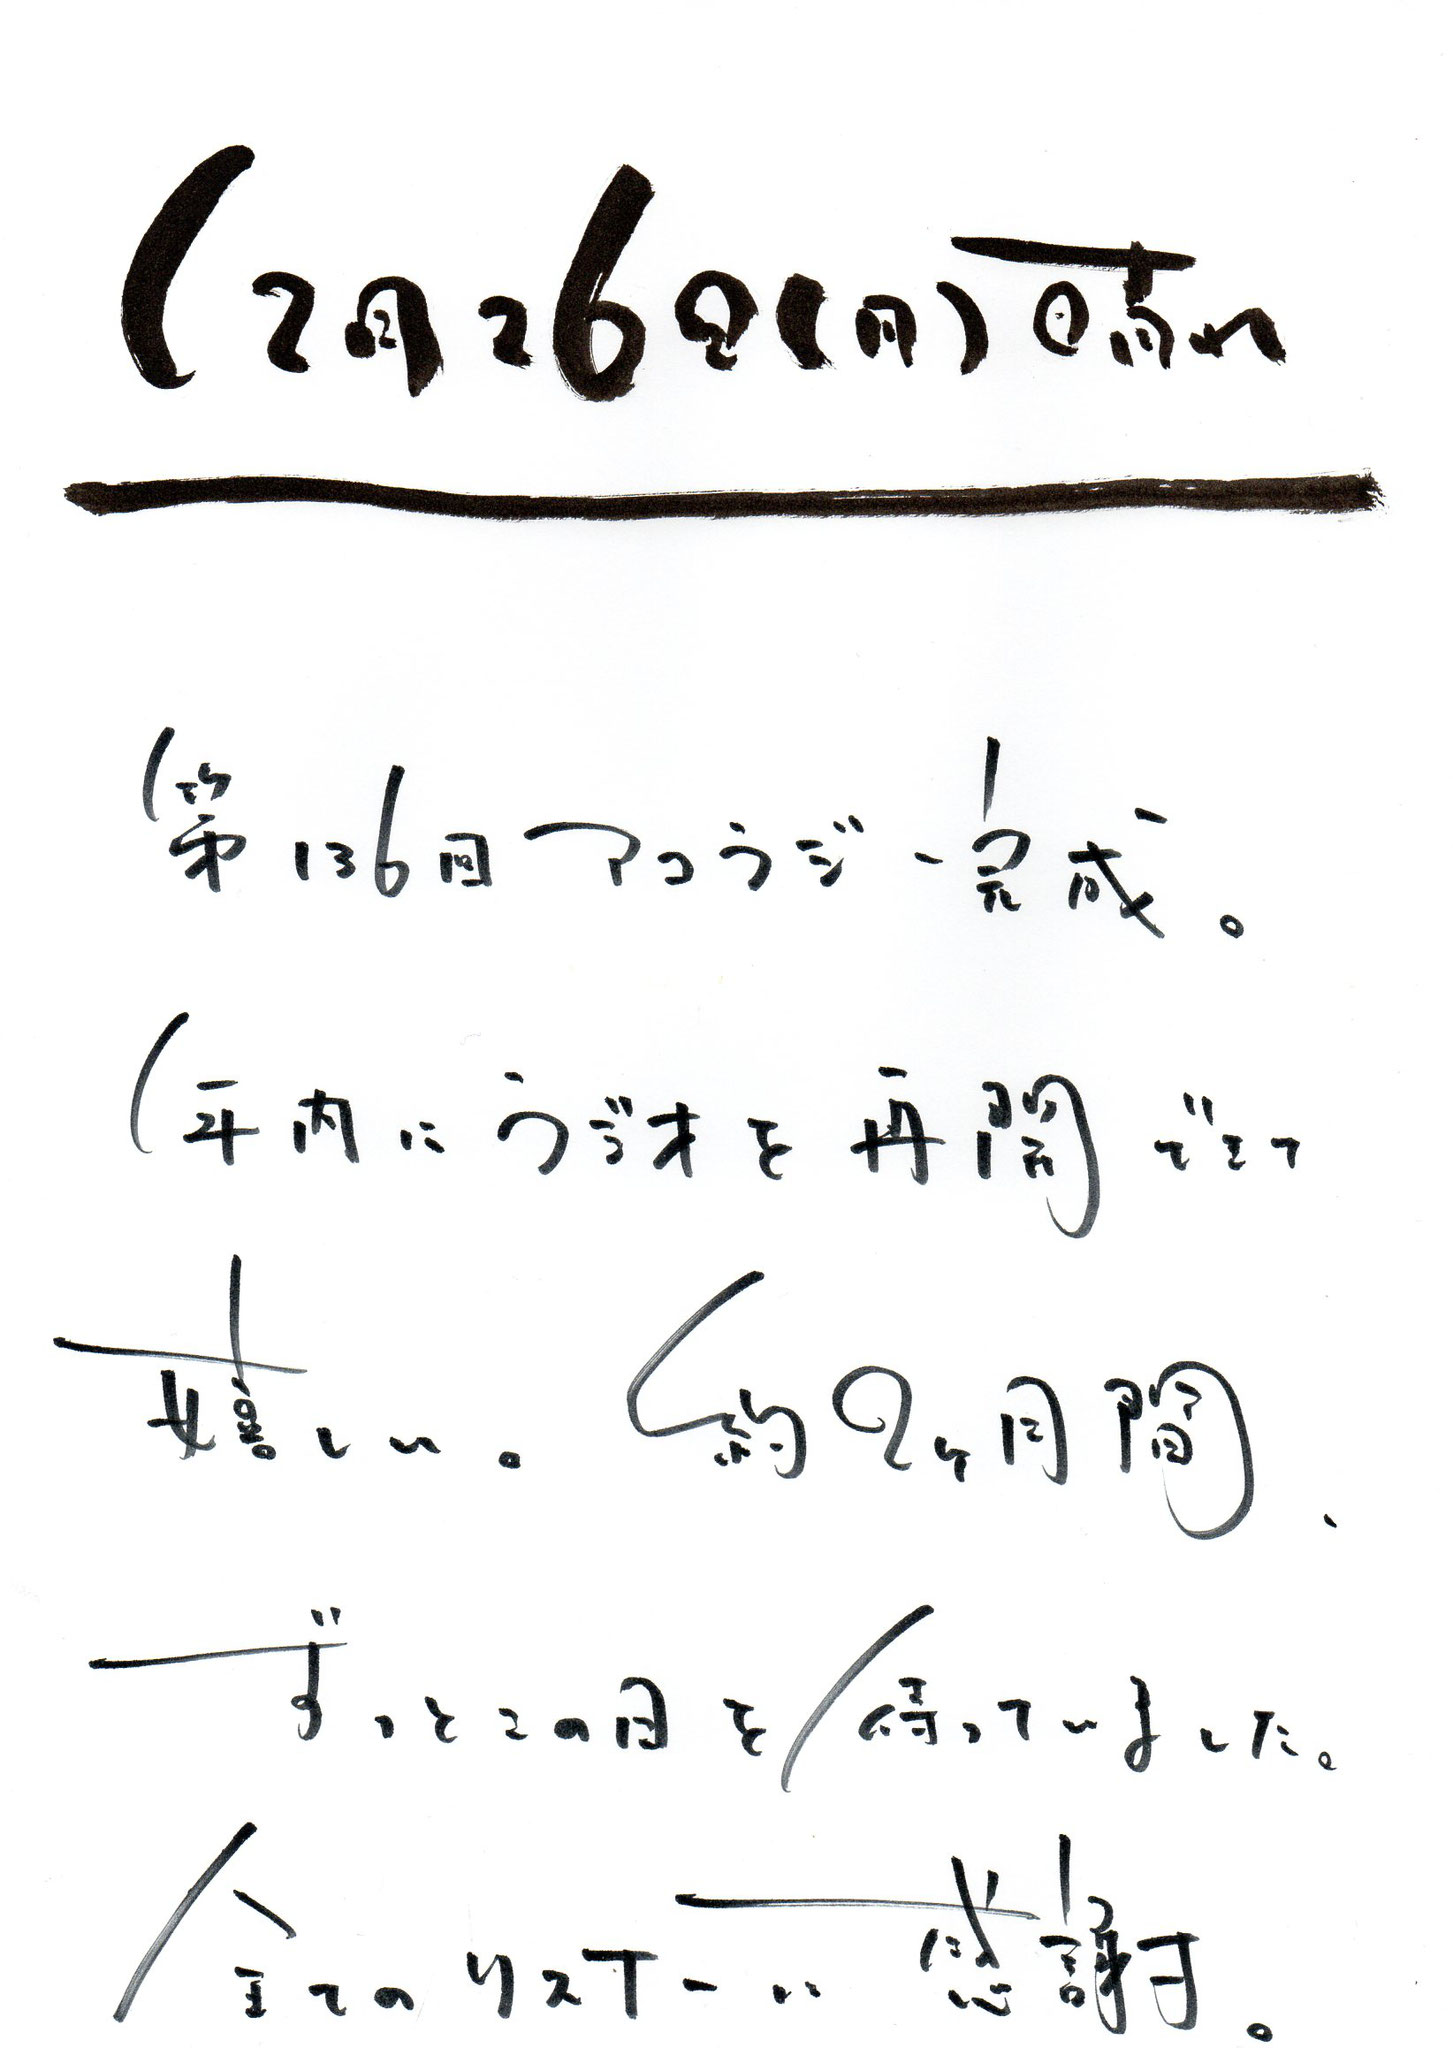 12月26日(月)晴れ
第136回アコラジ、完成。
年内にラジオを再開できて
嬉しい。約2ヶ月間、
ずっとこの日を待っていました。
全てのリスナーに感謝。